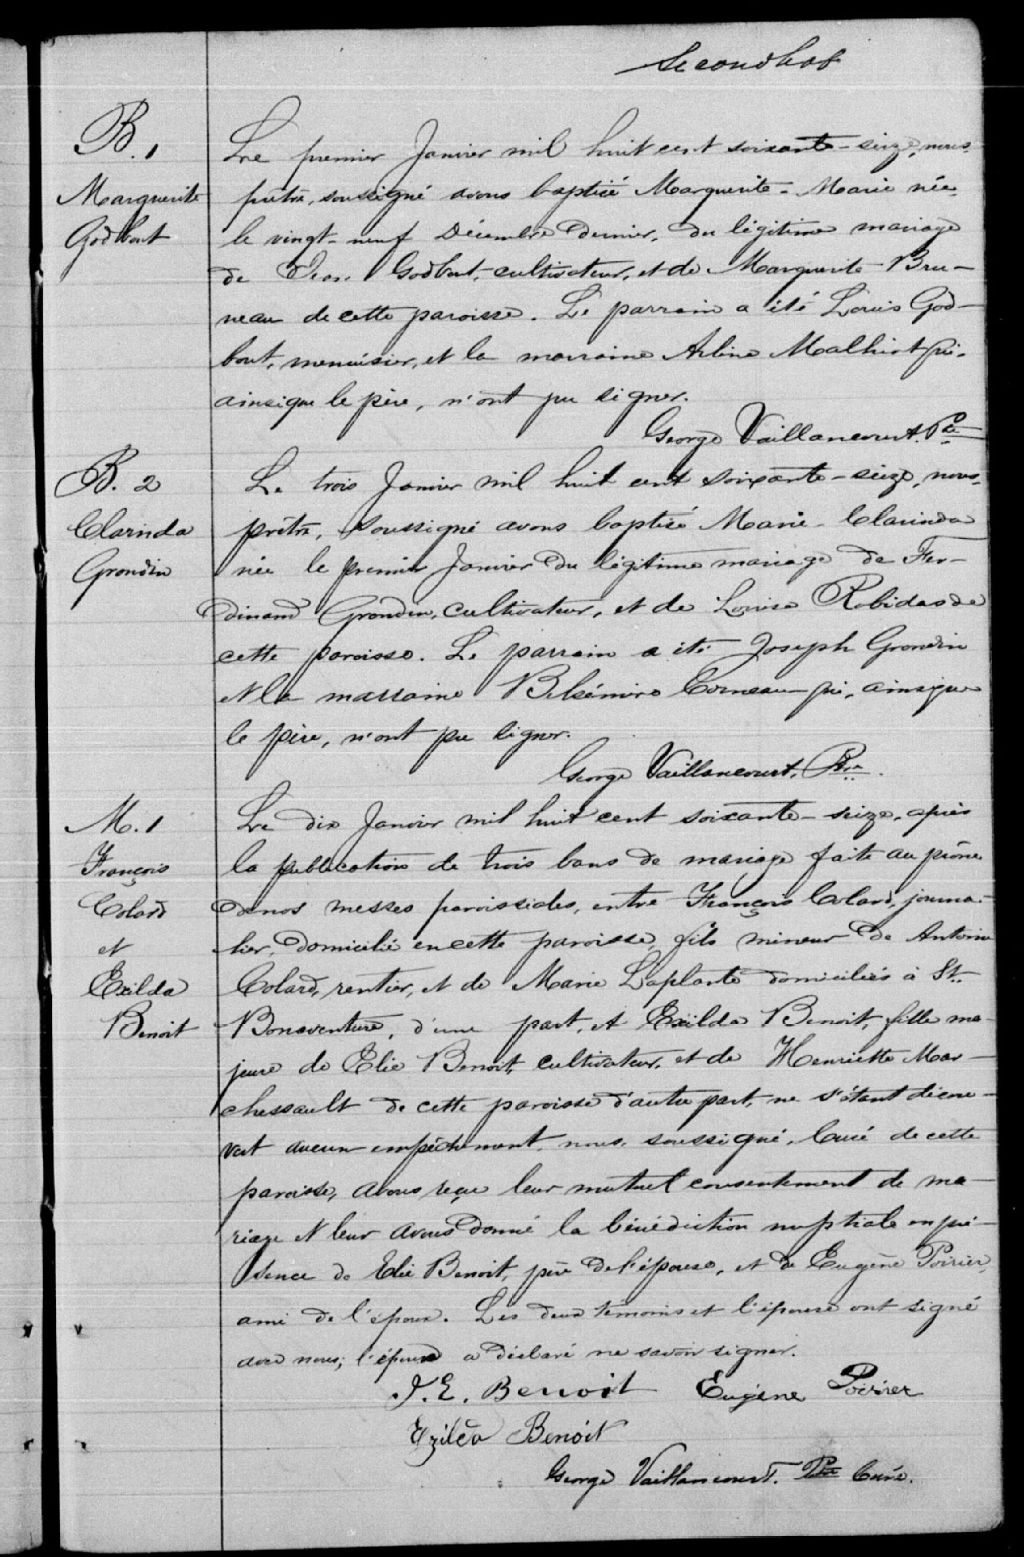 Second hob
B. 1
Marguerite
Godbout
Le premier Janvier mil huit cent soixante-seize, nous
prêtre, soussigné avons baptisé Marguerite-Marie née
le vingt-neuf Décembre dernier, du légitime mariage
de Jean Godbout, cultivateur, et de Marguerite Bru-
neau de cette paroisse. Le parrain a été Louis God-
bout, menuisier, et la marraine Arline Malhiot qui,
ainsique le père, n'ont pu signer.
George Vaillancourt. Ptre
B. 2
Clarinda
Grondin
Le trois Janvier mil huit cent soixante-seize, nous,
prêtre, soussigné avons baptisé Marie-Clarinda
née le premier Janvier du légitime mariage de Fer-
dinand Grondin, cultivateur, et de Louise Robidas de
cette paroisse. Le parrain a été Joseph Grondin
et la marraine Belsémire Corneau qui, ainsique
le père, n'ont pu signer.
George Vaillancourt, Ptre.
M. 1
François
Colard
et
Exilda
Benoit
Le dix Janvier mil huit cent soixante-seize, après
la publication de trois bans de mariage faite au prône
de nos messes paroissiales, entre François Colard, journa-
lier, domicilié en cette paroisse, fils mineur de Antoine
Colard, rentier, et de Marie Laplante domiciliés à St.
Bonaventure, d'une part, et Exilda Benoit, fille ma-
jeure de Elie Benoit, cultivateur, et de Henriette Mar-
chessault de cette paroisse d'autre part, ne s'étant décou-
vert aucun empêchement, nous, soussigné, Curé de cette
paroisse, avons reçu leur mutuel consentement de ma-
riage et leur avons donné la bénédiction nuptiale en pré-
sence de Elie Benoit, père de l'épouse, et de Eugène Poirier,
ami de l'époux. Les deux témoins et l'épouse ont signé
avec nous; l'époux a déclaré ne savoir signer.
J. E. Benoit Eugène Poirier
Ezilda Benoit
George Vaillancourt. Ptre Curé.